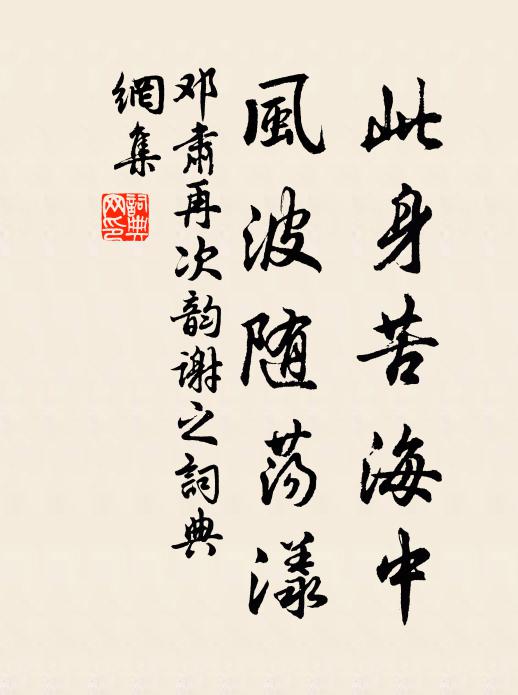 此身苦海中
風波随荡漾
邓肃再次韵谢之詞典
網集
詞典網印